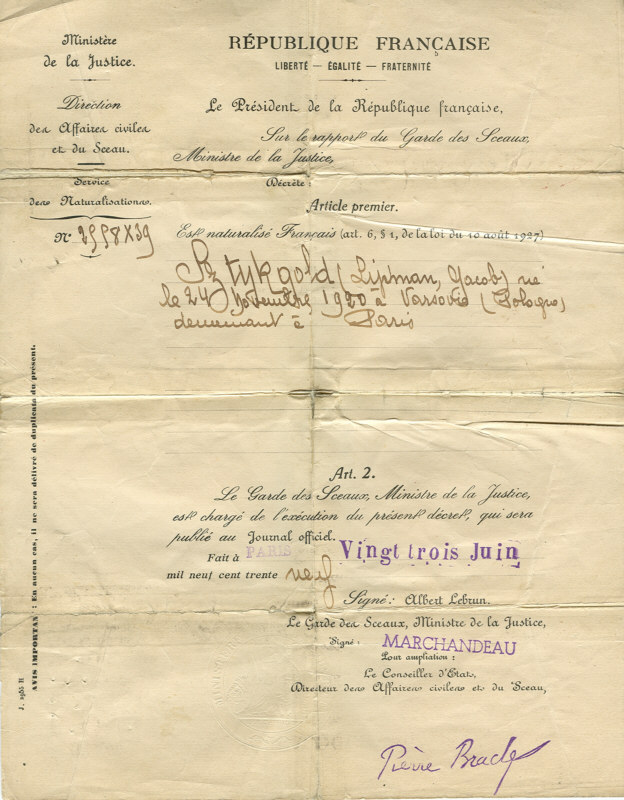 Ministère
de la Justice.
Direction
des Affaires civiles
et du Sceau.
Service
des Naturalisations.
N° 2558X39
RÉPUBLIQUE FRANÇAISE
LIBERTÉ — ÉGALITÉ — FRATERNITÉ
Le Président de la République française,
Sur le rapport du Garde des Sceaux,
Ministre de la Justice,
Décrète :
Article premier.
Est naturalisé Français (art. 6, § 1, de la loi du 10 août 1927)
Sztykgold (Lipman, Jacob) né
le 24 novembre 1920 à Varsovie (Pologne)
demeurant à Paris
Art. 2.
Le Garde des Sceaux, Ministre de la Justice,
est chargé de l'exécution du présent décret, qui sera
publié au Journal officiel.
Fait à PARIS Vingt trois Juin
mil neuf cent trente neuf
Signé : Albert Lebrun.
Le Garde des Sceaux, Ministre de la Justice,
Signé : MARCHANDEAU
Pour ampliation :
Le Conseiller d'État,
Directeur des Affaires civiles et du Sceau,
Pierre
AVIS IMPORTANT : En aucun cas, il ne sera délivré de duplicata du présent.
J. 2955 H